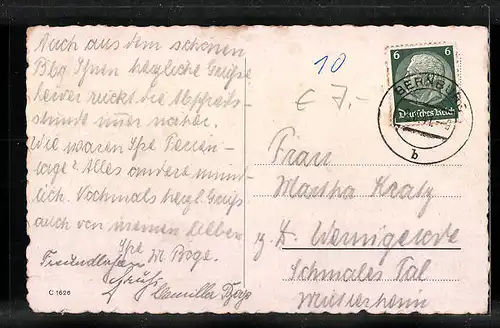 Auch aus dem schönen
Bbg Ihnen herzliche Grüße
leider rückt die Abschieds-
stunde immer näher.
Wie waren Ihre Ferien-
tage? Alles andere münd-
lich. Nochmals herzl Grüß
auch von meinen lieben
Ihre M Boge.
Freundlichen
Gruß
Camilla Boge
C 1626
10
€ 7,-
6 6
Deutsches Reich
BERNBURG
b
Frau
Martha Kratz
z. Z. Wernigerode
Schmales Tal
Mütterheim